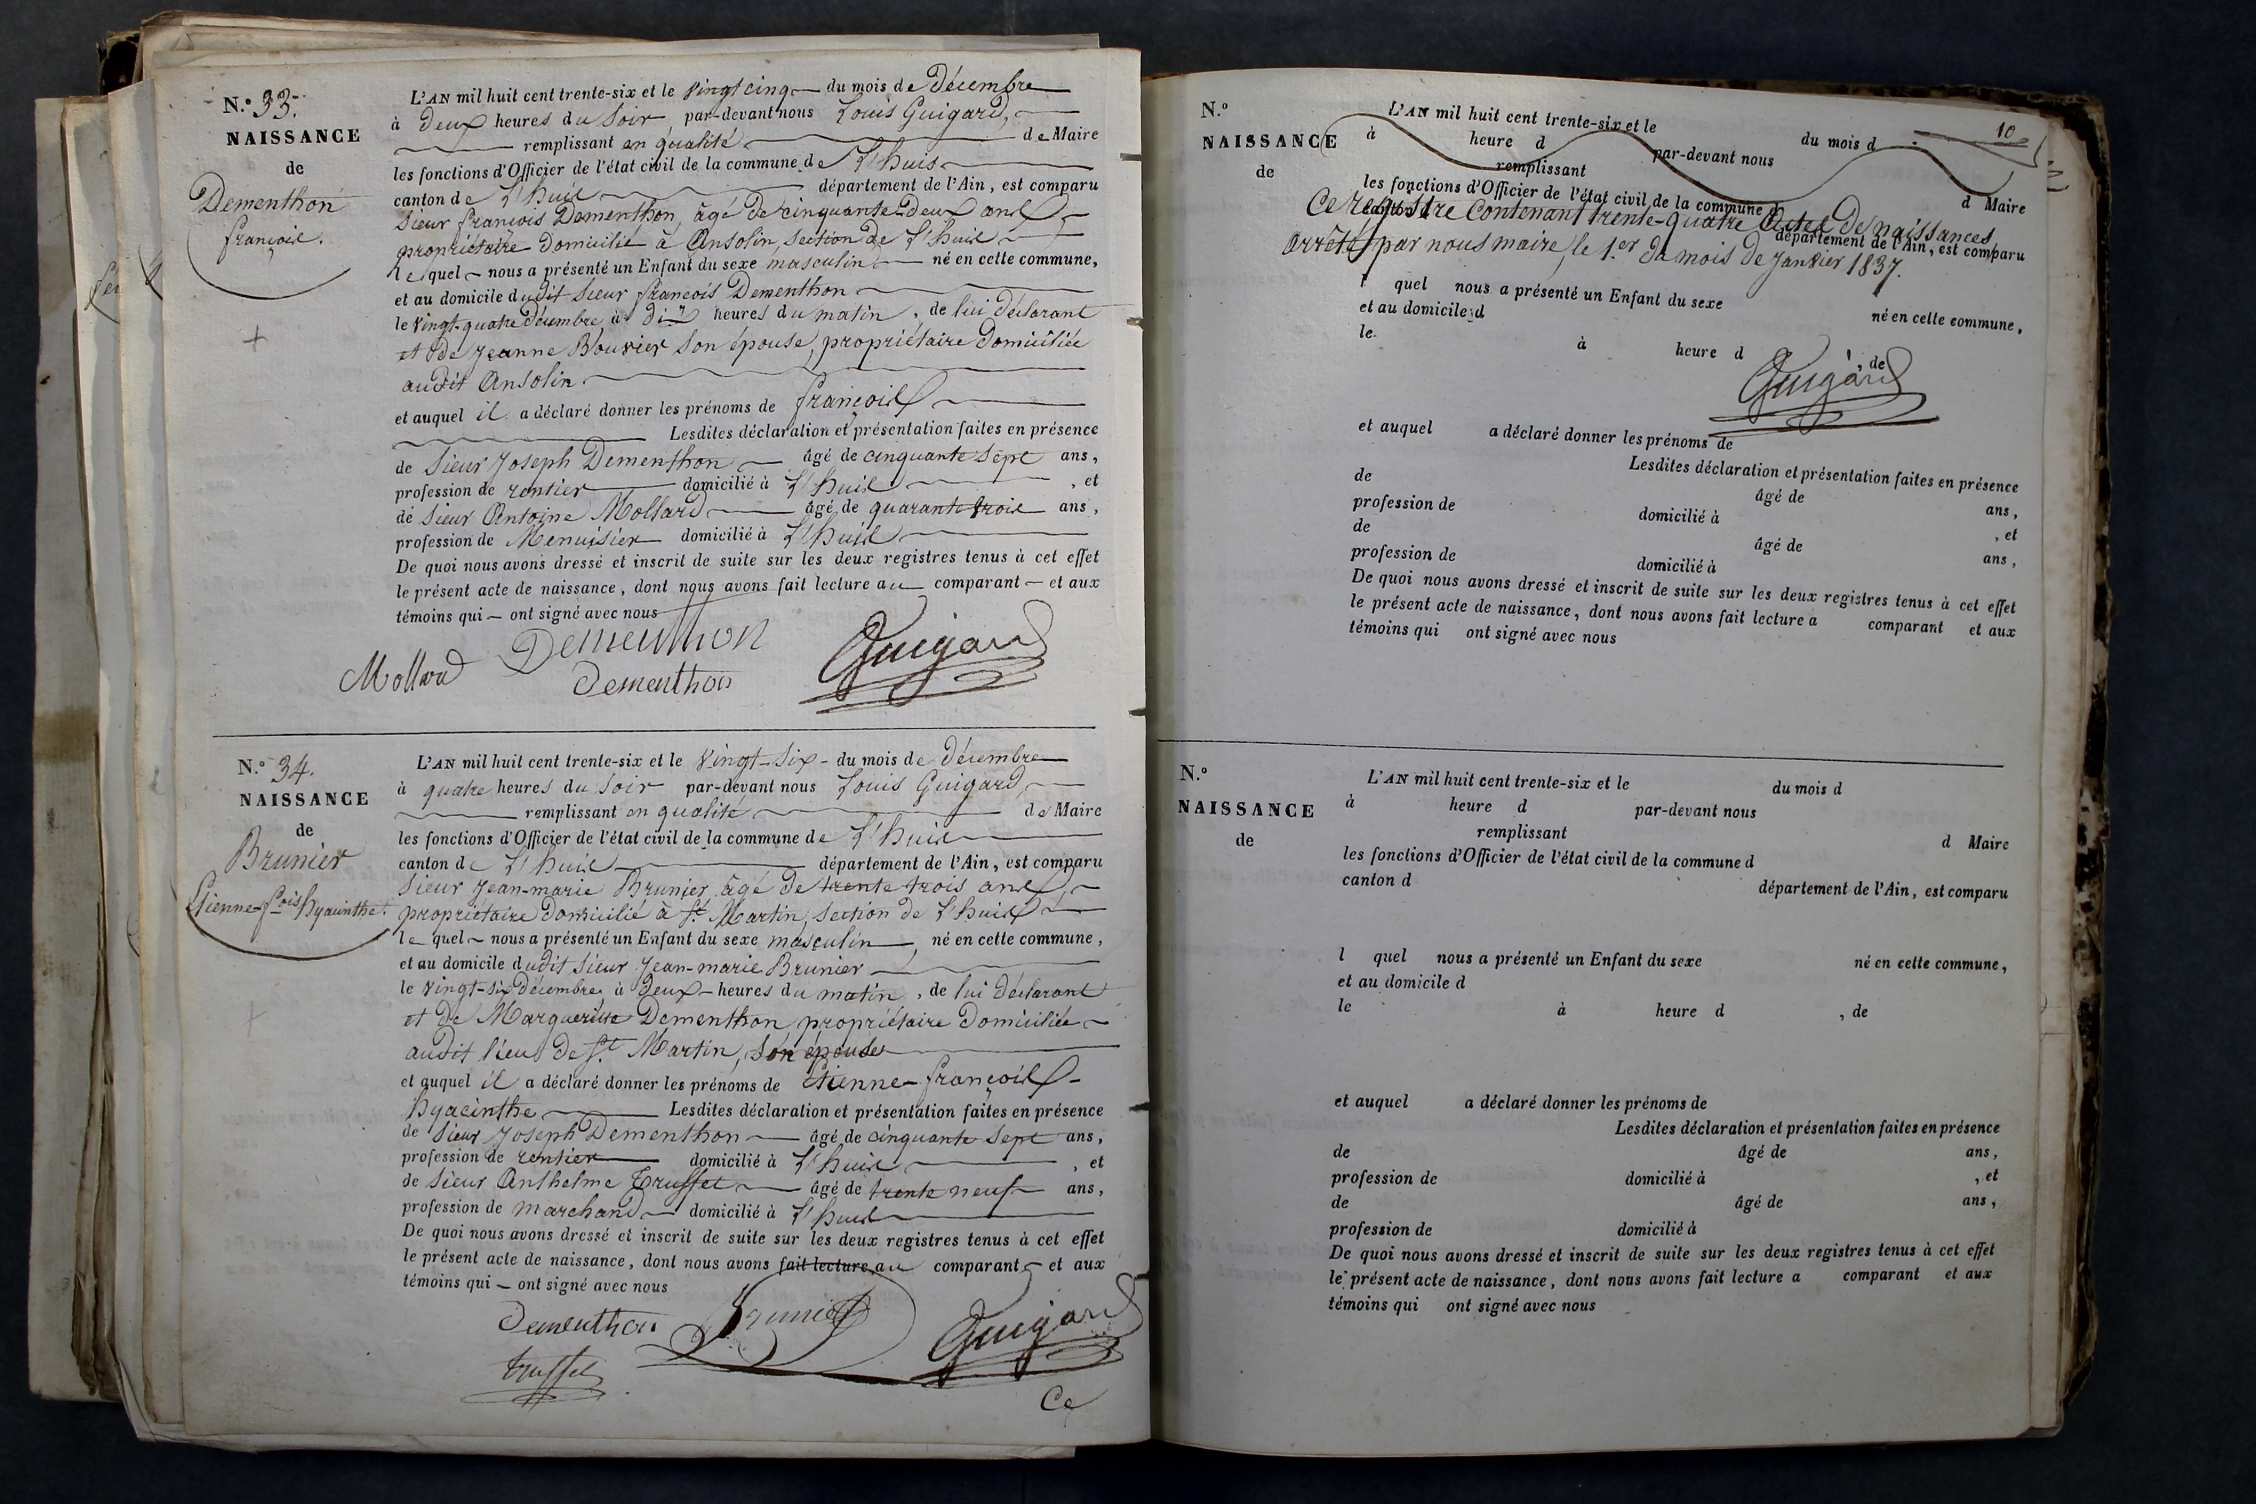 N.º 33.
NAISSANCE
de
Dementhon
françois.
L'AN mil huit cent trente-six et le vingt cinq du mois de Décembre
à deux heures du soir par-devant nous Louis Guigard,
remplissant en qualité de Maire
les fonctions d'Officier de l'état civil de la commune de L'huis
canton de L'huis département de l'Ain, est comparu
sieur françois Dementhon, âgé de cinquante-deux ans,
propriétaire domicilié à Ansolin, section de L'huis
lequel nous a présenté un Enfant du sexe masculin né en cette commune,
et au domicile dudit sieur françois Dementhon
le vingt-quatre Décembre à dix heures du matin, de lui déclarant
et de Jeanne Bouvier son épouse, propriétaire domiciliée
audit Ansolin
et auquel il a déclaré donner les prénoms de françois
Lesdites déclaration et présentation faites en présence
de sieur Joseph Dementhon âgé de cinquante sept ans,
profession de rentier domicilié à L'huis, et
de sieur Antoine Mollard âgé de quarante trois ans,
profession de Menuisier domicilié à L'huis
De quoi nous avons dressé et inscrit de suite sur les deux registres tenus à cet effet
le présent acte de naissance, dont nous avons fait lecture au comparant et aux
témoins qui ont signé avec nous
Dementhon
Mollard
Dementhon
Guigard
N.º 34.
NAISSANCE
de
Brunier
Etienne-fçois hyacinthe.
L'AN mil huit cent trente-six et le vingt-six du mois de Décembre
à quatre heures du soir par-devant nous Louis Guigard,
remplissant en qualité de Maire
les fonctions d'Officier de l'état civil de la commune de L'huis
canton de L'huis département de l'Ain, est comparu
sieur Jean-marie Brunier, âgé de trente trois ans,
propriétaire domicilié à St. Martin, section de L'huis
lequel nous a présenté un Enfant du sexe masculin, né en cette commune,
et au domicile dudit sieur Jean-marie Brunier
le vingt-six Décembre à deux heures du matin, de lui déclarant
et de Margueritte Dementhon, propriétaire domiciliée
audit lieu de St. Martin, son épouse
et auquel il a déclaré donner les prénoms de Etienne-françois-
hyacinthe Lesdites déclaration et présentation faites en présence
de sieur Joseph Dementhon âgé de cinquante sept ans,
profession de rentier domicilié à L'huis, et
de sieur Anthelme Trusset âgé de trente neuf ans,
profession de marchand domicilié à L'huis
De quoi nous avons dressé et inscrit de suite sur les deux registres tenus à cet effet
le présent acte de naissance, dont nous avons fait lecture au comparant et aux
témoins qui ont signé avec nous
Dementhon
Brunier
Guigard
trusset
Ce
10
N.º
NAISSANCE
de
L'AN mil huit cent trente-six et le du mois d
à heure d par-devant nous
remplissant d Maire
les fonctions d'Officier de l'état civil de la commune d
canton d département de l'Ain, est comparu
Ce registre contenant trente-quatre Actes de naissances,
arrêté par nous maire, le 1.er du mois de Janvier 1837.
l quel nous a présenté un Enfant du sexe né en cette commune,
et au domicile d
le à heure d , de
Guigard
et auquel a déclaré donner les prénoms de
Lesdites déclaration et présentation faites en présence
de âgé de ans,
profession de domicilié à , et
de âgé de ans,
profession de domicilié à
De quoi nous avons dressé et inscrit de suite sur les deux registres tenus à cet effet
le présent acte de naissance, dont nous avons fait lecture a comparant et aux
témoins qui ont signé avec nous
N.º
NAISSANCE
de
L'AN mil huit cent trente-six et le du mois d
à heure d par-devant nous
remplissant d Maire
les fonctions d'Officier de l'état civil de la commune d
canton d département de l'Ain, est comparu
l quel nous a présenté un Enfant du sexe né en cette commune,
et au domicile d
le à heure d , de
et auquel a déclaré donner les prénoms de
Lesdites déclaration et présentation faites en présence
de âgé de ans,
profession de domicilié à , et
de âgé de ans,
profession de domicilié à
De quoi nous avons dressé et inscrit de suite sur les deux registres tenus à cet effet
le présent acte de naissance, dont nous avons fait lecture a comparant et aux
témoins qui ont signé avec nous